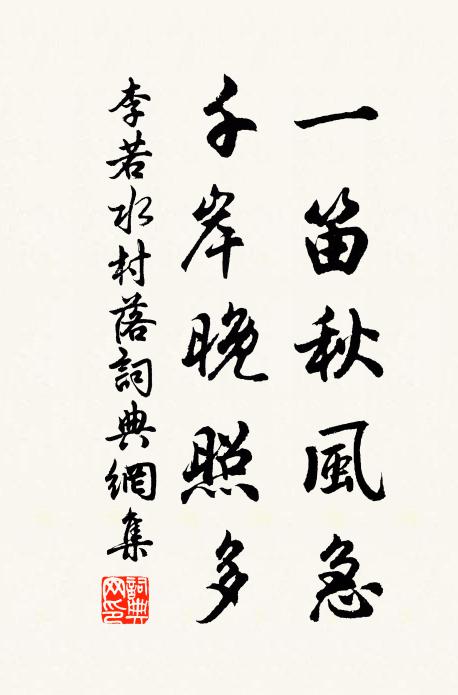 一笛秋風急
千岸晚照多
李若水村落詞典網集
詞典網印